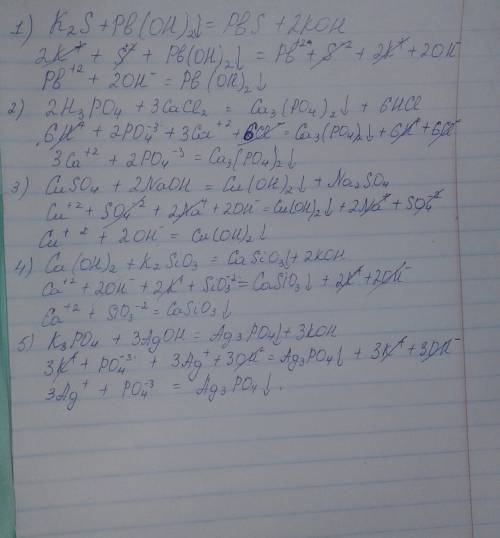 1) K₂S + Pb(OH)₂↓ = PbS + 2KOH
2K⁺ + S⁻² + Pb(OH)₂↓ = Pb⁺² + S⁻² + 2K⁺ + 2OH⁻
Pb⁺² + 2OH⁻ = Pb(OH)₂↓
2) 2H₃PO₄ + 3CaCl₂ = Ca₃(PO₄)₂↓ + 6HCl
6H⁺ + 2PO₄⁻³ + 3Ca⁺² + 6Cl⁻ = Ca₃(PO₄)₂↓ + 6H⁺ + 6Cl⁻
3Ca⁺² + 2PO₄⁻³ = Ca₃(PO₄)₂↓
3) CuSO₄ + 2NaOH = Cu(OH)₂↓ + Na₂SO₄
Cu⁺² + SO₄⁻² + 2Na⁺ + 2OH⁻ = Cu(OH)₂↓ + 2Na⁺ + SO₄⁻²
Cu⁺² + 2OH⁻ = Cu(OH)₂↓
4) Ca(OH)₂ + K₂SiO₃ = CaSiO₃↓ + 2KOH
Ca⁺² + 2OH⁻ + 2K⁺ + SiO₃⁻² = CaSiO₃↓ + 2K⁺ + 2OH⁻
Ca⁺² + SiO₃⁻² = CaSiO₃↓
5) K₃PO₄ + 3AgOH = Ag₃PO₄↓ + 3KOH
3K⁺ + PO₄⁻³ + 3Ag⁺ + 3OH⁻ = Ag₃PO₄↓ + 3K⁺ + 3OH⁻
3Ag⁺ + PO₄⁻³ = Ag₃PO₄↓.